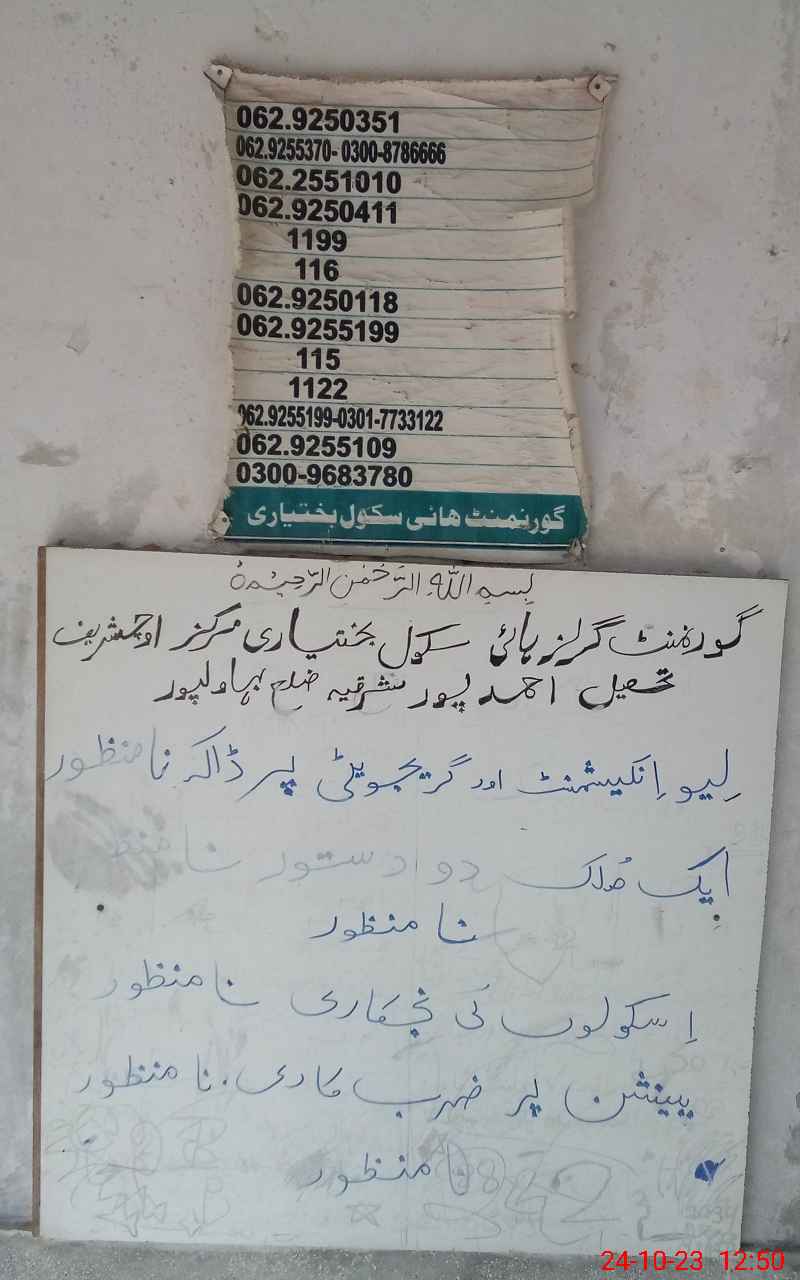 062.9250351
062.9255370- 0300-8786666
062.2551010
062.9250411
1199
116
062.9250118
062.9255199
115
1122
062.9255199-0301-7733122
062.9255109
0300-9683780
گورنمنٹ ھائی سکول بختیاری
بِسمِ اللہِ الرَّحمٰنِ الرَّحِیْمِ
گورنمنٹ گرلز ہائی سکول بختیاری مرکز اوچشریف
تحصیل احمد پور شرقیہ ضلع بہاولپور
لِیو اِنکیشمنٹ اور گریجویٹی پر ڈاکہ نا منظور
ایک مُلک دو دستور نا منظ
نا منظور
اِسکولوں کی نجکاری نا منظور
پینشن پر ضرب کاری۔ نا منظور
نا منظور
24-10-23 12:50